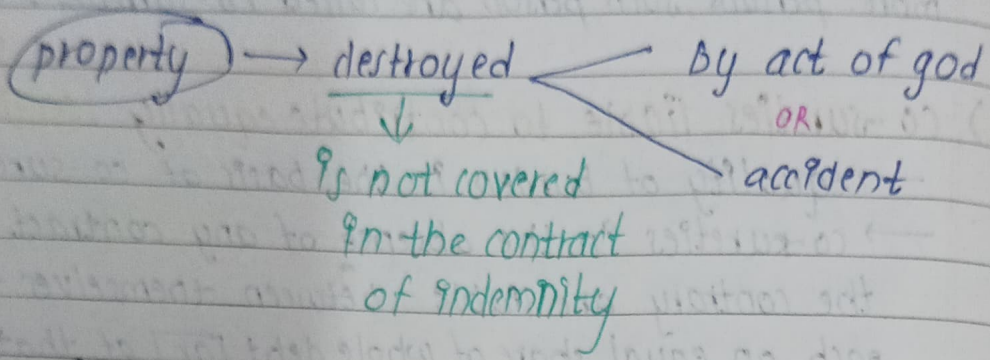 property → destroyed By act of god
OR
accident
is not covered
in the contract
of indemnity